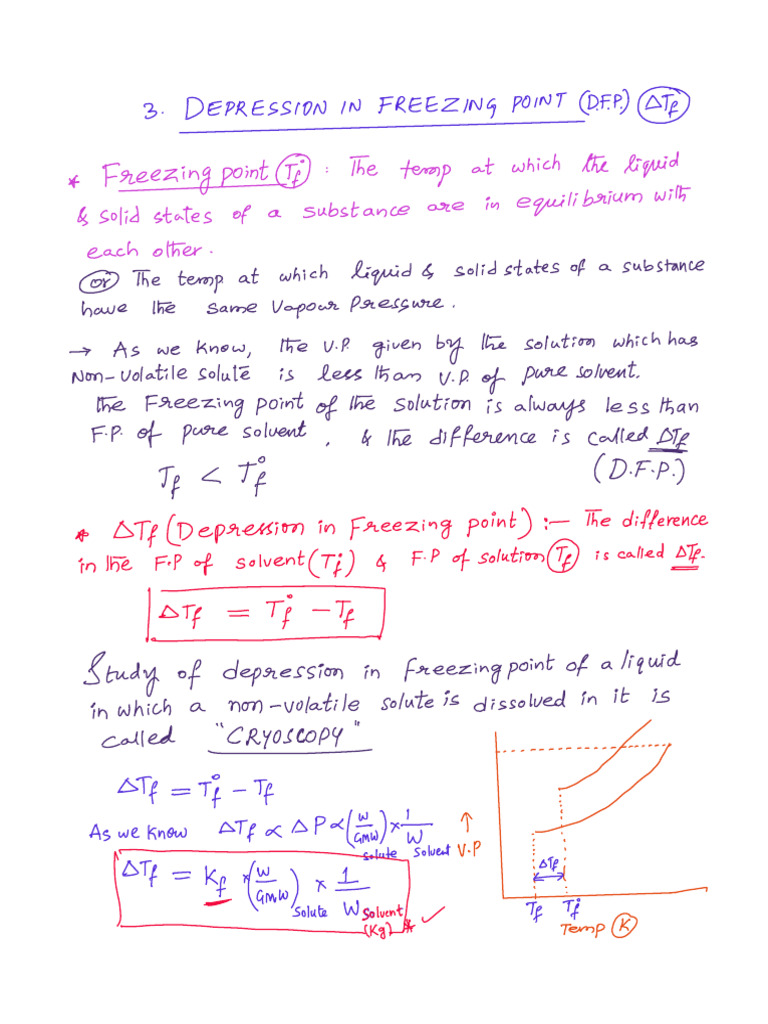 3. DEPRESSION IN FREEZING POINT (D.F.P.) ΔTf
* Freezing point Tf° : The temp at which the liquid
& solid states of a substance are in equilibrium with
each other.
or The temp at which liquid & solid states of a substance
have the same Vapour Pressure.
→ As we know, the V.P. given by the solution which has
Non-volatile solute is less than V.P. of pure solvent.
the Freezing point of the solution is always less than
F.P. of pure solvent, & the difference is called ΔTf
Tf < Tf° (D.F.P.)
* ΔTf (Depression in Freezing point) :- The difference
in the F.P of solvent (Tf°) & F.P of solution Tf is called ΔTf.
ΔTf = Tf° - Tf
Study of depression in freezing point of a liquid
in which a non-volatile solute is dissolved in it is
called "CRYOSCOPY"
ΔTf = Tf° - Tf
As we know ΔTf ∝ ΔP ∝ (w/GMW) solute × 1/W Solvent
ΔTf = Kf × (w/GMW) solute × 1/W Solvent (Kg) *
↑
V.P
ΔTf
Tf Tf°
Temp K